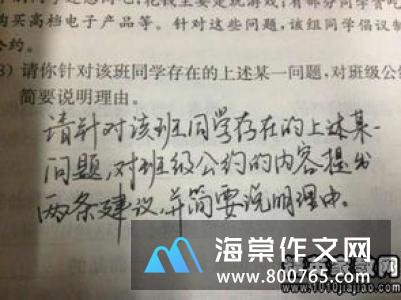 购买高档电子产品等。针对这些问题,该组同学倡议制
公约。
3)请你针对该班同学存在的上述某一问题,对班级公
简要说明理由。
请针对该班同学存在的上述某一
问题,对班级公约的内容提出
两条建议,并简要说明理由。
海棠作文网
www.800765.com
www.1010jiajiao.com